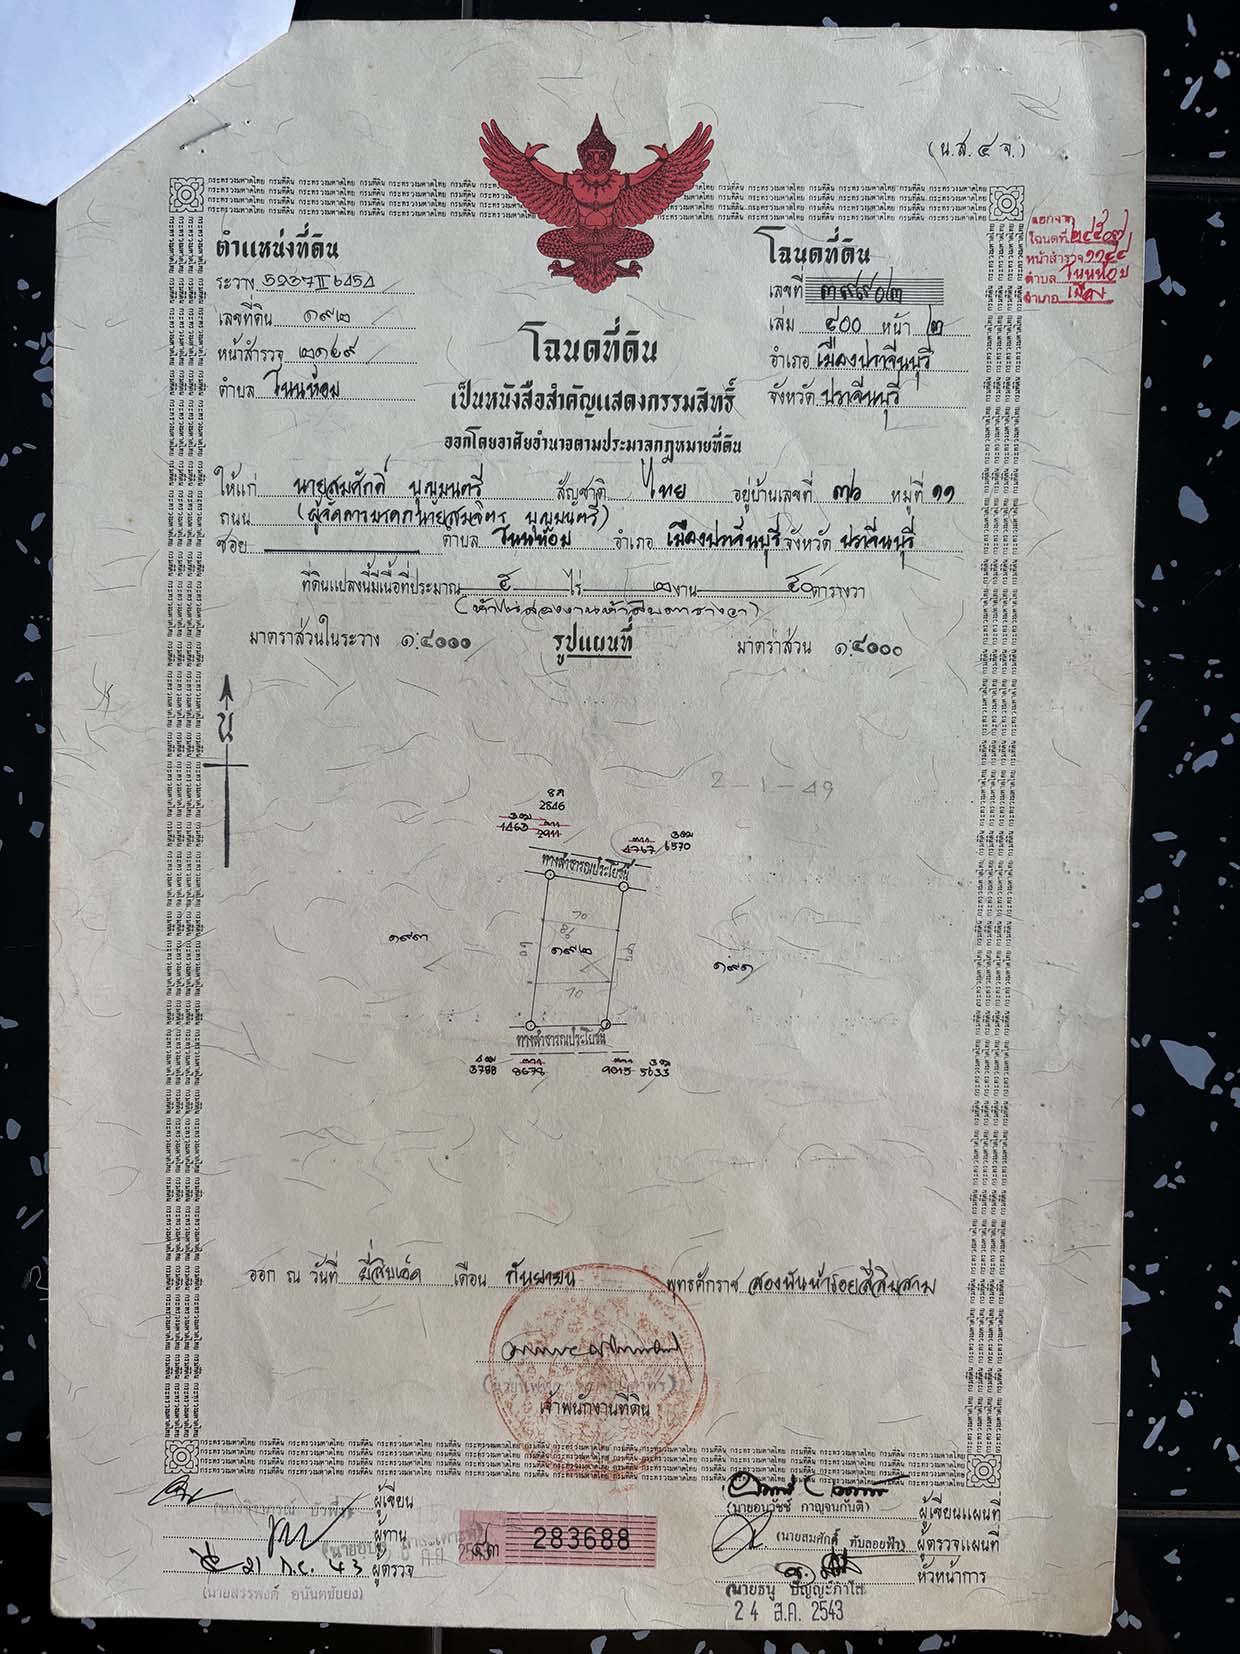 (น.ส.๔ จ.)
ตำแหน่งที่ดิน
ระวาง 5237 II 6454
เลขที่ดิน ๑๙๒
หน้าสำรวจ ๒๑๒๙
ตำบล โนนห้อม
โฉนดที่ดิน
เลขที่
เล่ม ๔๐๐ หน้า ๓
อำเภอ เมืองปราจีนบุรี
จังหวัด ปราจีนบุรี
โฉนดที่
หน้าสำรวจ
ตำบล โนนห้อม
อำเภอ เมือง
โฉนดที่ดิน
เป็นหนังสือสำคัญแสดงกรรมสิทธิ์
ออกโดยอาศัยอำนาจตามประมวลกฎหมายที่ดิน
ให้แก่ นายสมศักดิ์ บุญมนตรี สัญชาติ ไทย อยู่บ้านเลขที่ ๓๖ หมู่ที่ ๑๑
ถนน (ผู้จัดการมรดกนายสมจิตร บุญมนตรี)
ซอย ตำบล โนนห้อม อำเภอ เมืองปราจีนบุรี จังหวัด ปราจีนบุรี
ที่ดินแปลงนี้มีเนื้อที่ประมาณ ๕ ไร่ ๒ งาน ๕๐ ตารางวา
(ห้าไร่สองงานห้าสิบตารางวา)
มาตราส่วนในระวาง ๑:๔๐๐๐ รูปแผนที่ มาตราส่วน ๑:๔๐๐๐
น
2-1-49
2846
1463 2911
4767 6570
ทางสาธารณประโยชน์
๑๙๓
๑๙๒
๑๙๑
70
70
ทางสาธารณประโยชน์
3788 8678 9015 5633
ออก ณ วันที่ ยี่สิบเอ็ด เดือน กันยายน พุทธศักราช สองพันห้าร้อยสี่สิบสาม
เจ้าพนักงานที่ดิน
ผู้เขียน
ผู้ทาน
21 ก.ย. 43 ผู้ตรวจ
(นายสรรพงศ์ อนันตชัยยง)
283688
(นายอนุวัชช์ กาญจนกันติ) ผู้เขียนแผนที่
(นายสมศักดิ์ ทับลอยฟ้า) ผู้ตรวจแผนที่
หัวหน้าการ
นายธนู ปัญญะภาโส
24 ส.ค. 2543